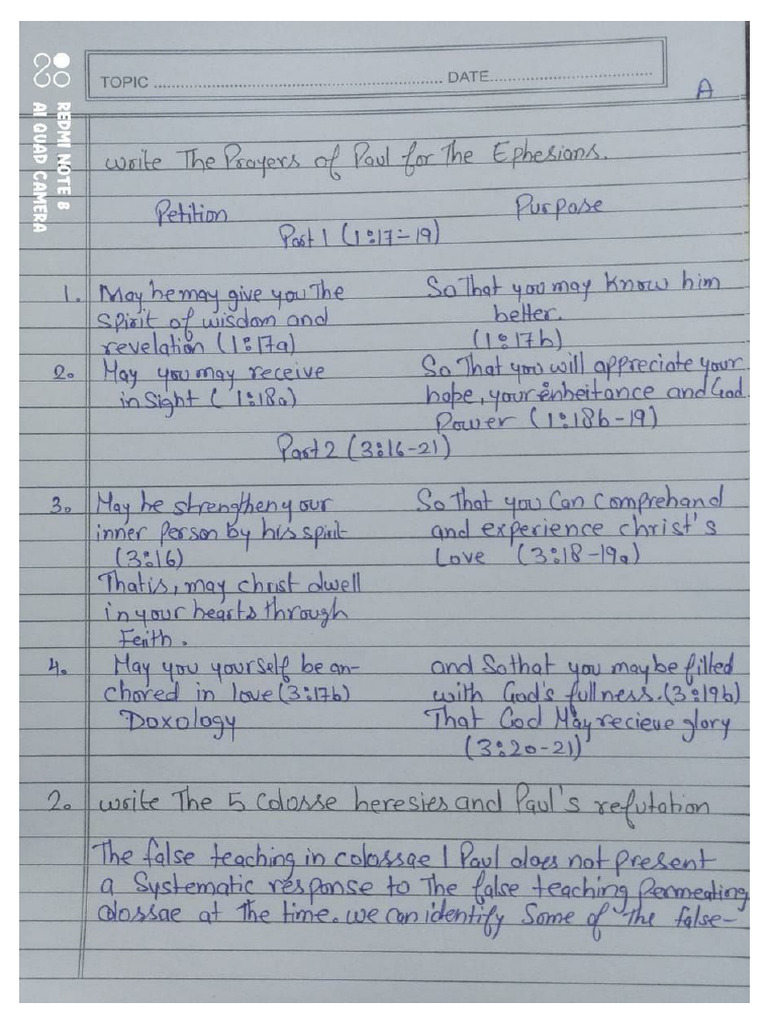 TOPIC ............ DATE............
A
REDMI NOTE 8
AI QUAD CAMERA
Write The Prayers of Paul for The Ephesians.
Petition Purpose
Part 1 (1:17-19)
1. May he may give you The So That you may Know him
spirit of wisdom and better.
revelation (1:17a) (1:17b)
2. May you may receive So That you will appreciate your
insight ( 1:18a) hope, your inheitance and God
Power (1:18b-19)
Part 2 (3:16-21)
3. May he strengthen your So That you Can Comprehand
inner Person by his spirit and experience christ's
(3:16) Love (3:18-19a)
Thatis, may christ dwell
in your hearts through
Feith.
4. May you yourself be an- and Sothat you maybe filled
chored in love (3:17b) with God's fullness. (3:19b)
Doxology That God May recieve glory
(3:20-21)
2. write The 5 Colosse heresies and Paul's refutation
The false teaching in colossae / Paul does not present
a Systematic response to The false teaching Permeating
colossae at The time. we can identify Some of The false-